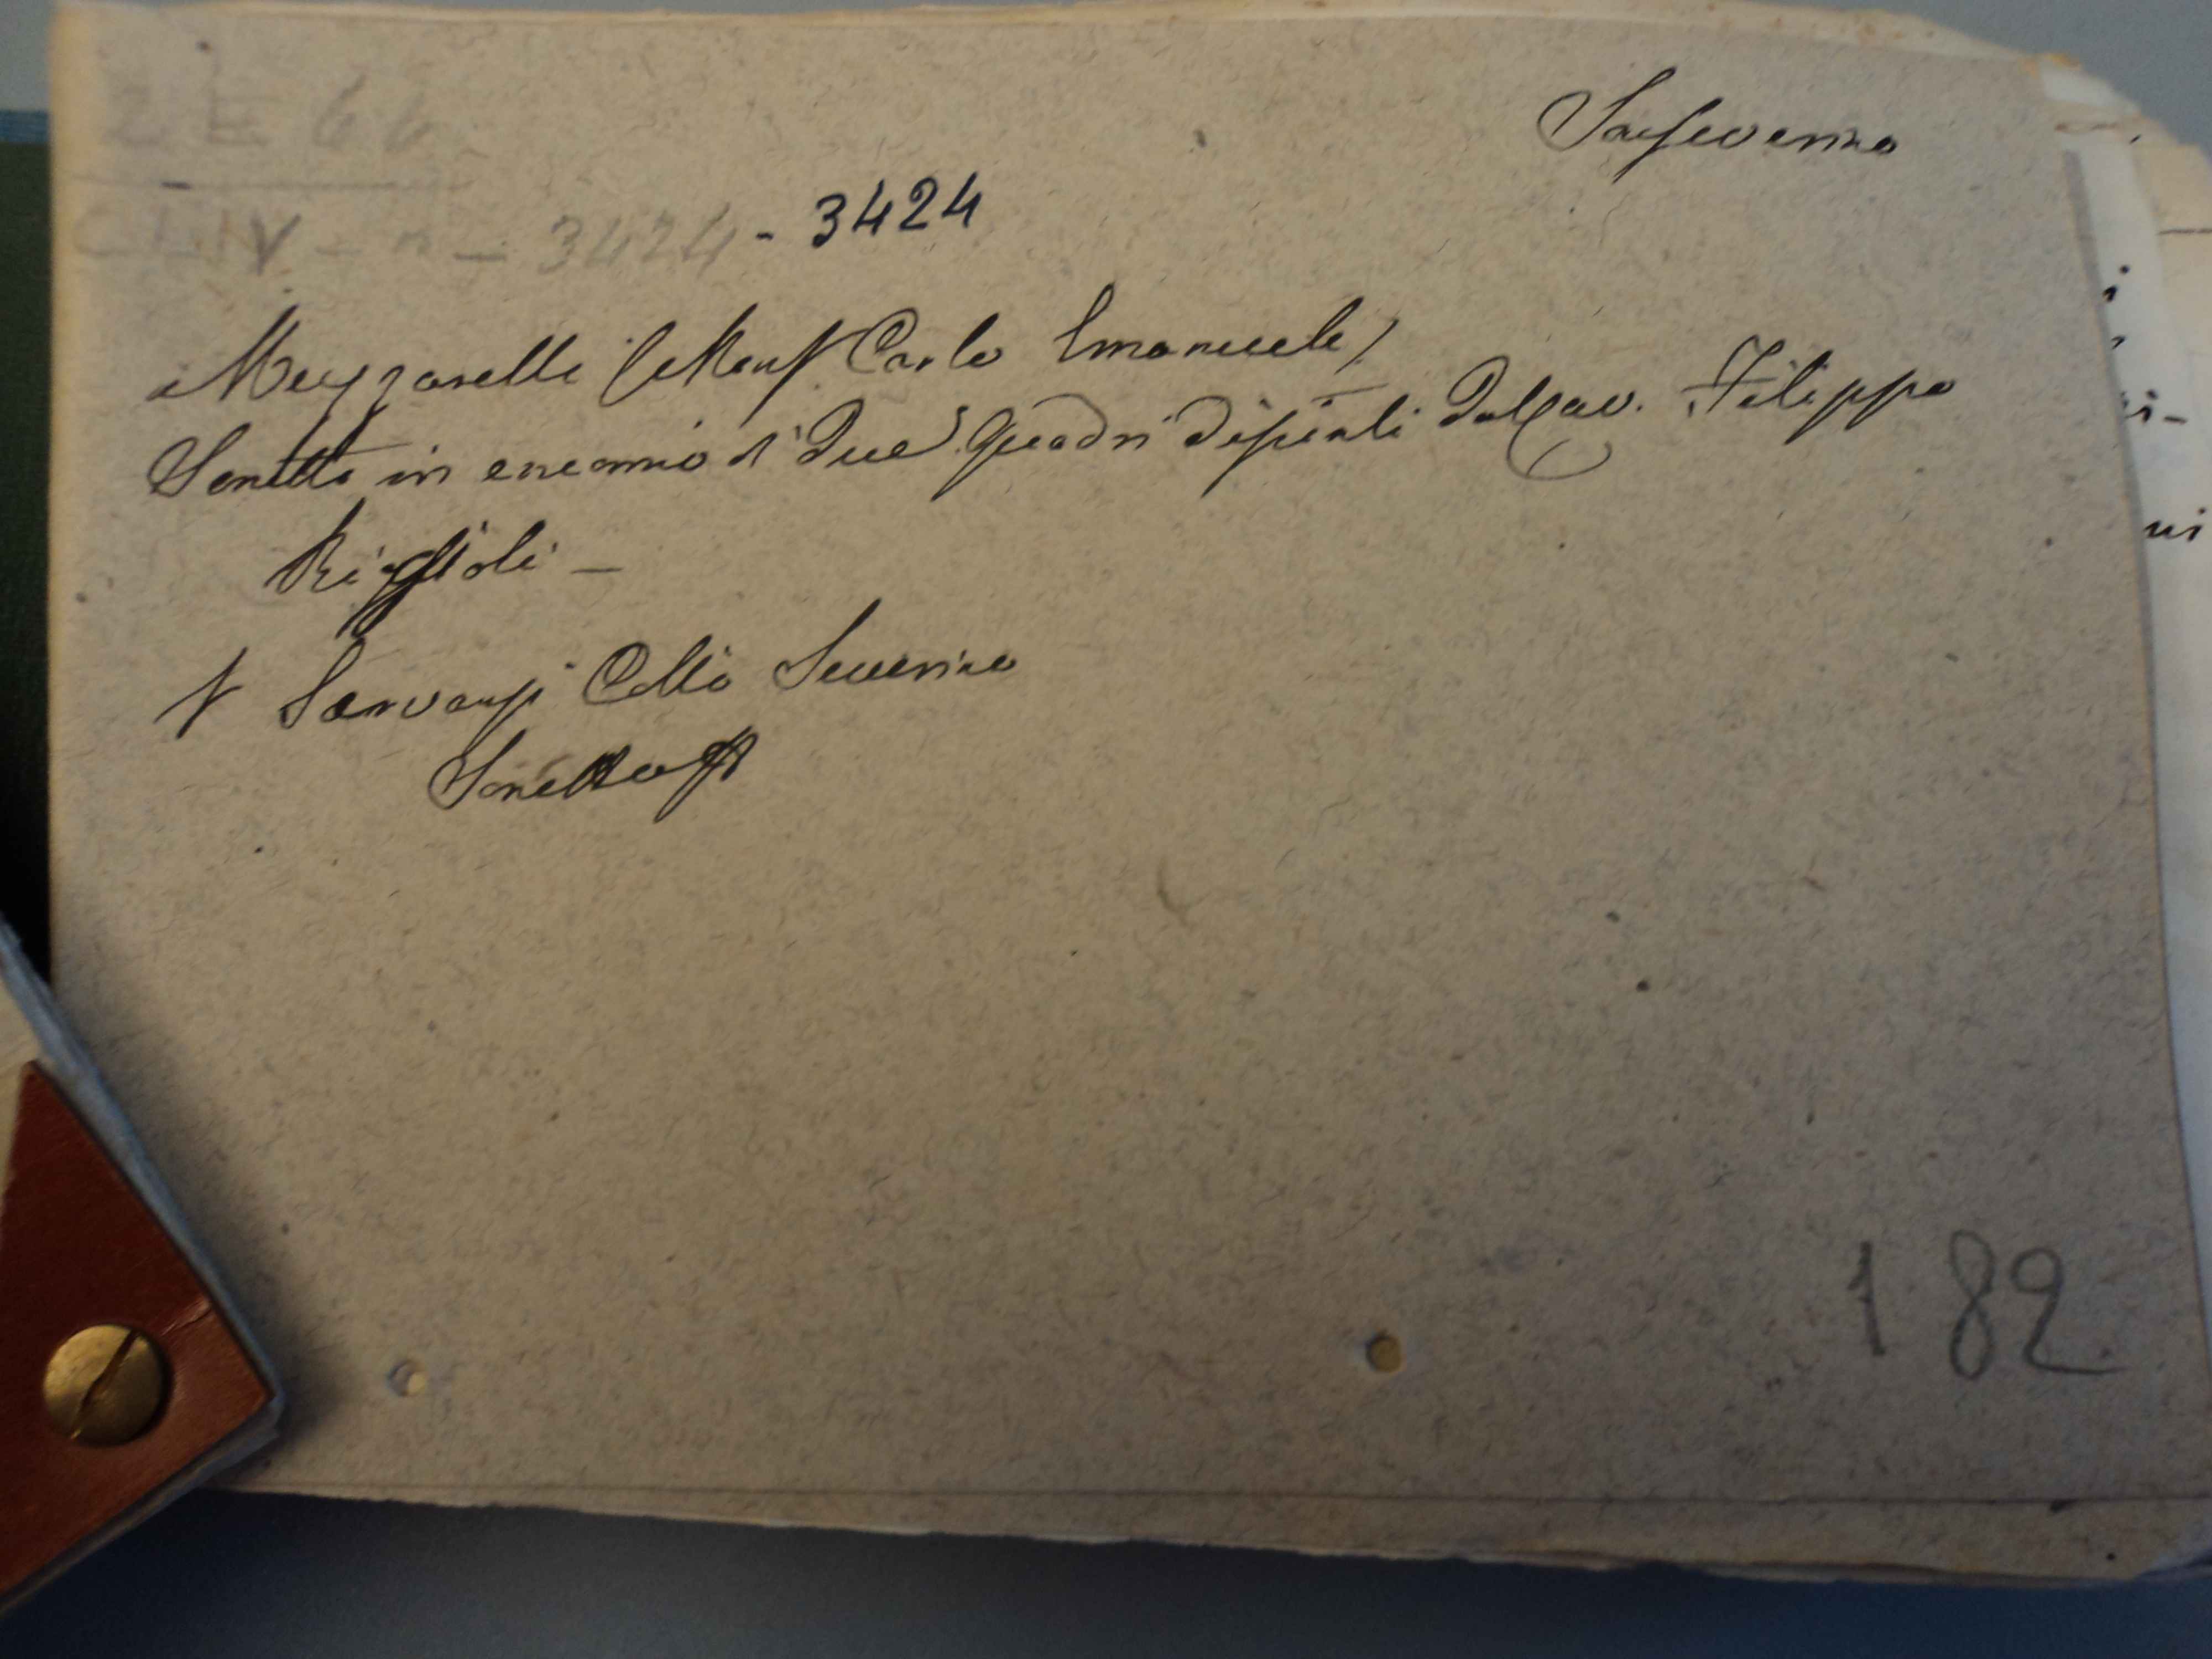 Sanseverino
2 E 66
CLIV - n - 3424 - 3424
Muzzarelli (Mons Carlo Emanuele)
Sonetto in encomio di due quadri dipinti dal cav. Filippo
Bigioli —
Servanzi Collio Severino
Sonetto
182